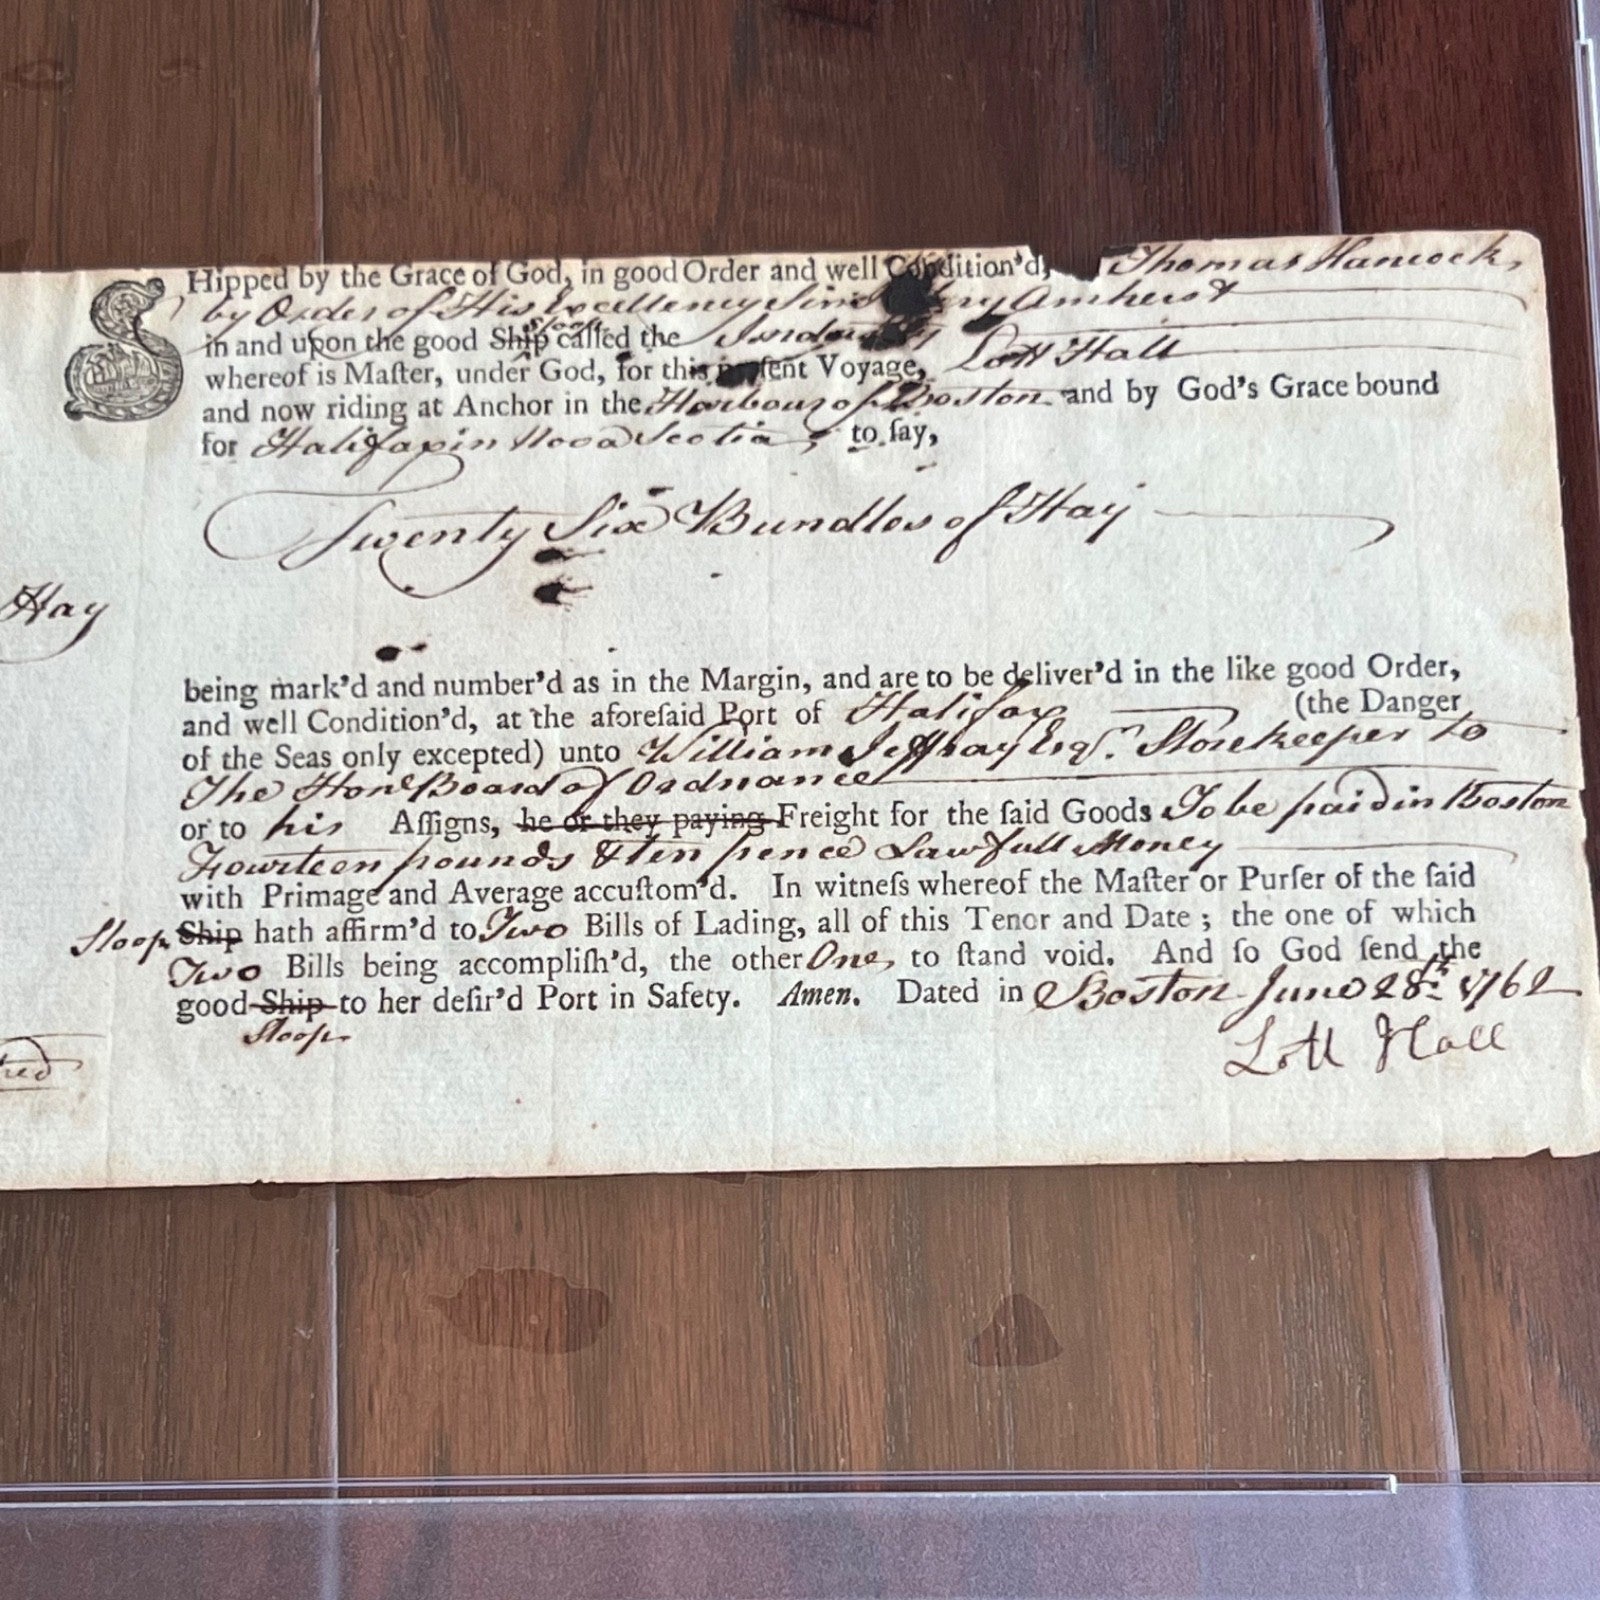 SHipped by the Grace of God, in good Order and well Condition'd, Thomas Hancock,
by Order of His Excellency Amherst
Sloop
in and upon the good Ship called the Lott Hall
whereof is Maſter, under God, for this preſent Voyage,
and now riding at Anchor in the Harbour of Boston and by God's Grace bound
for Halifax in Nova Scotia, to ſay,
Twenty Six Bundles of Hay
Hay
being mark'd and number'd as in the Margin, and are to be deliver'd in the like good Order,
and well Condition'd, at the aforeſaid Port of Halifax (the Danger
of the Seas only excepted) unto William Jeffray Esqr. Storekeeper to
The Hone Board of Ordnance
or to his Aſſigns, he or they paying Freight for the ſaid Goods To be paid in Boston
Fourteen pounds & ten pence Lawfull Money
with Primage and Average accuſtom'd. In witneſs whereof the Maſter or Purſer of the ſaid
Sloop Ship hath affirm'd to Two Bills of Lading, all of this Tenor and Date; the one of which
Two Bills being accompliſh'd, the other One, to ſtand void. And ſo God ſend the
good Ship to her deſir'd Port in Safety. Amen. Dated in Boston June 28th 1762
Sloop
Lott Hall